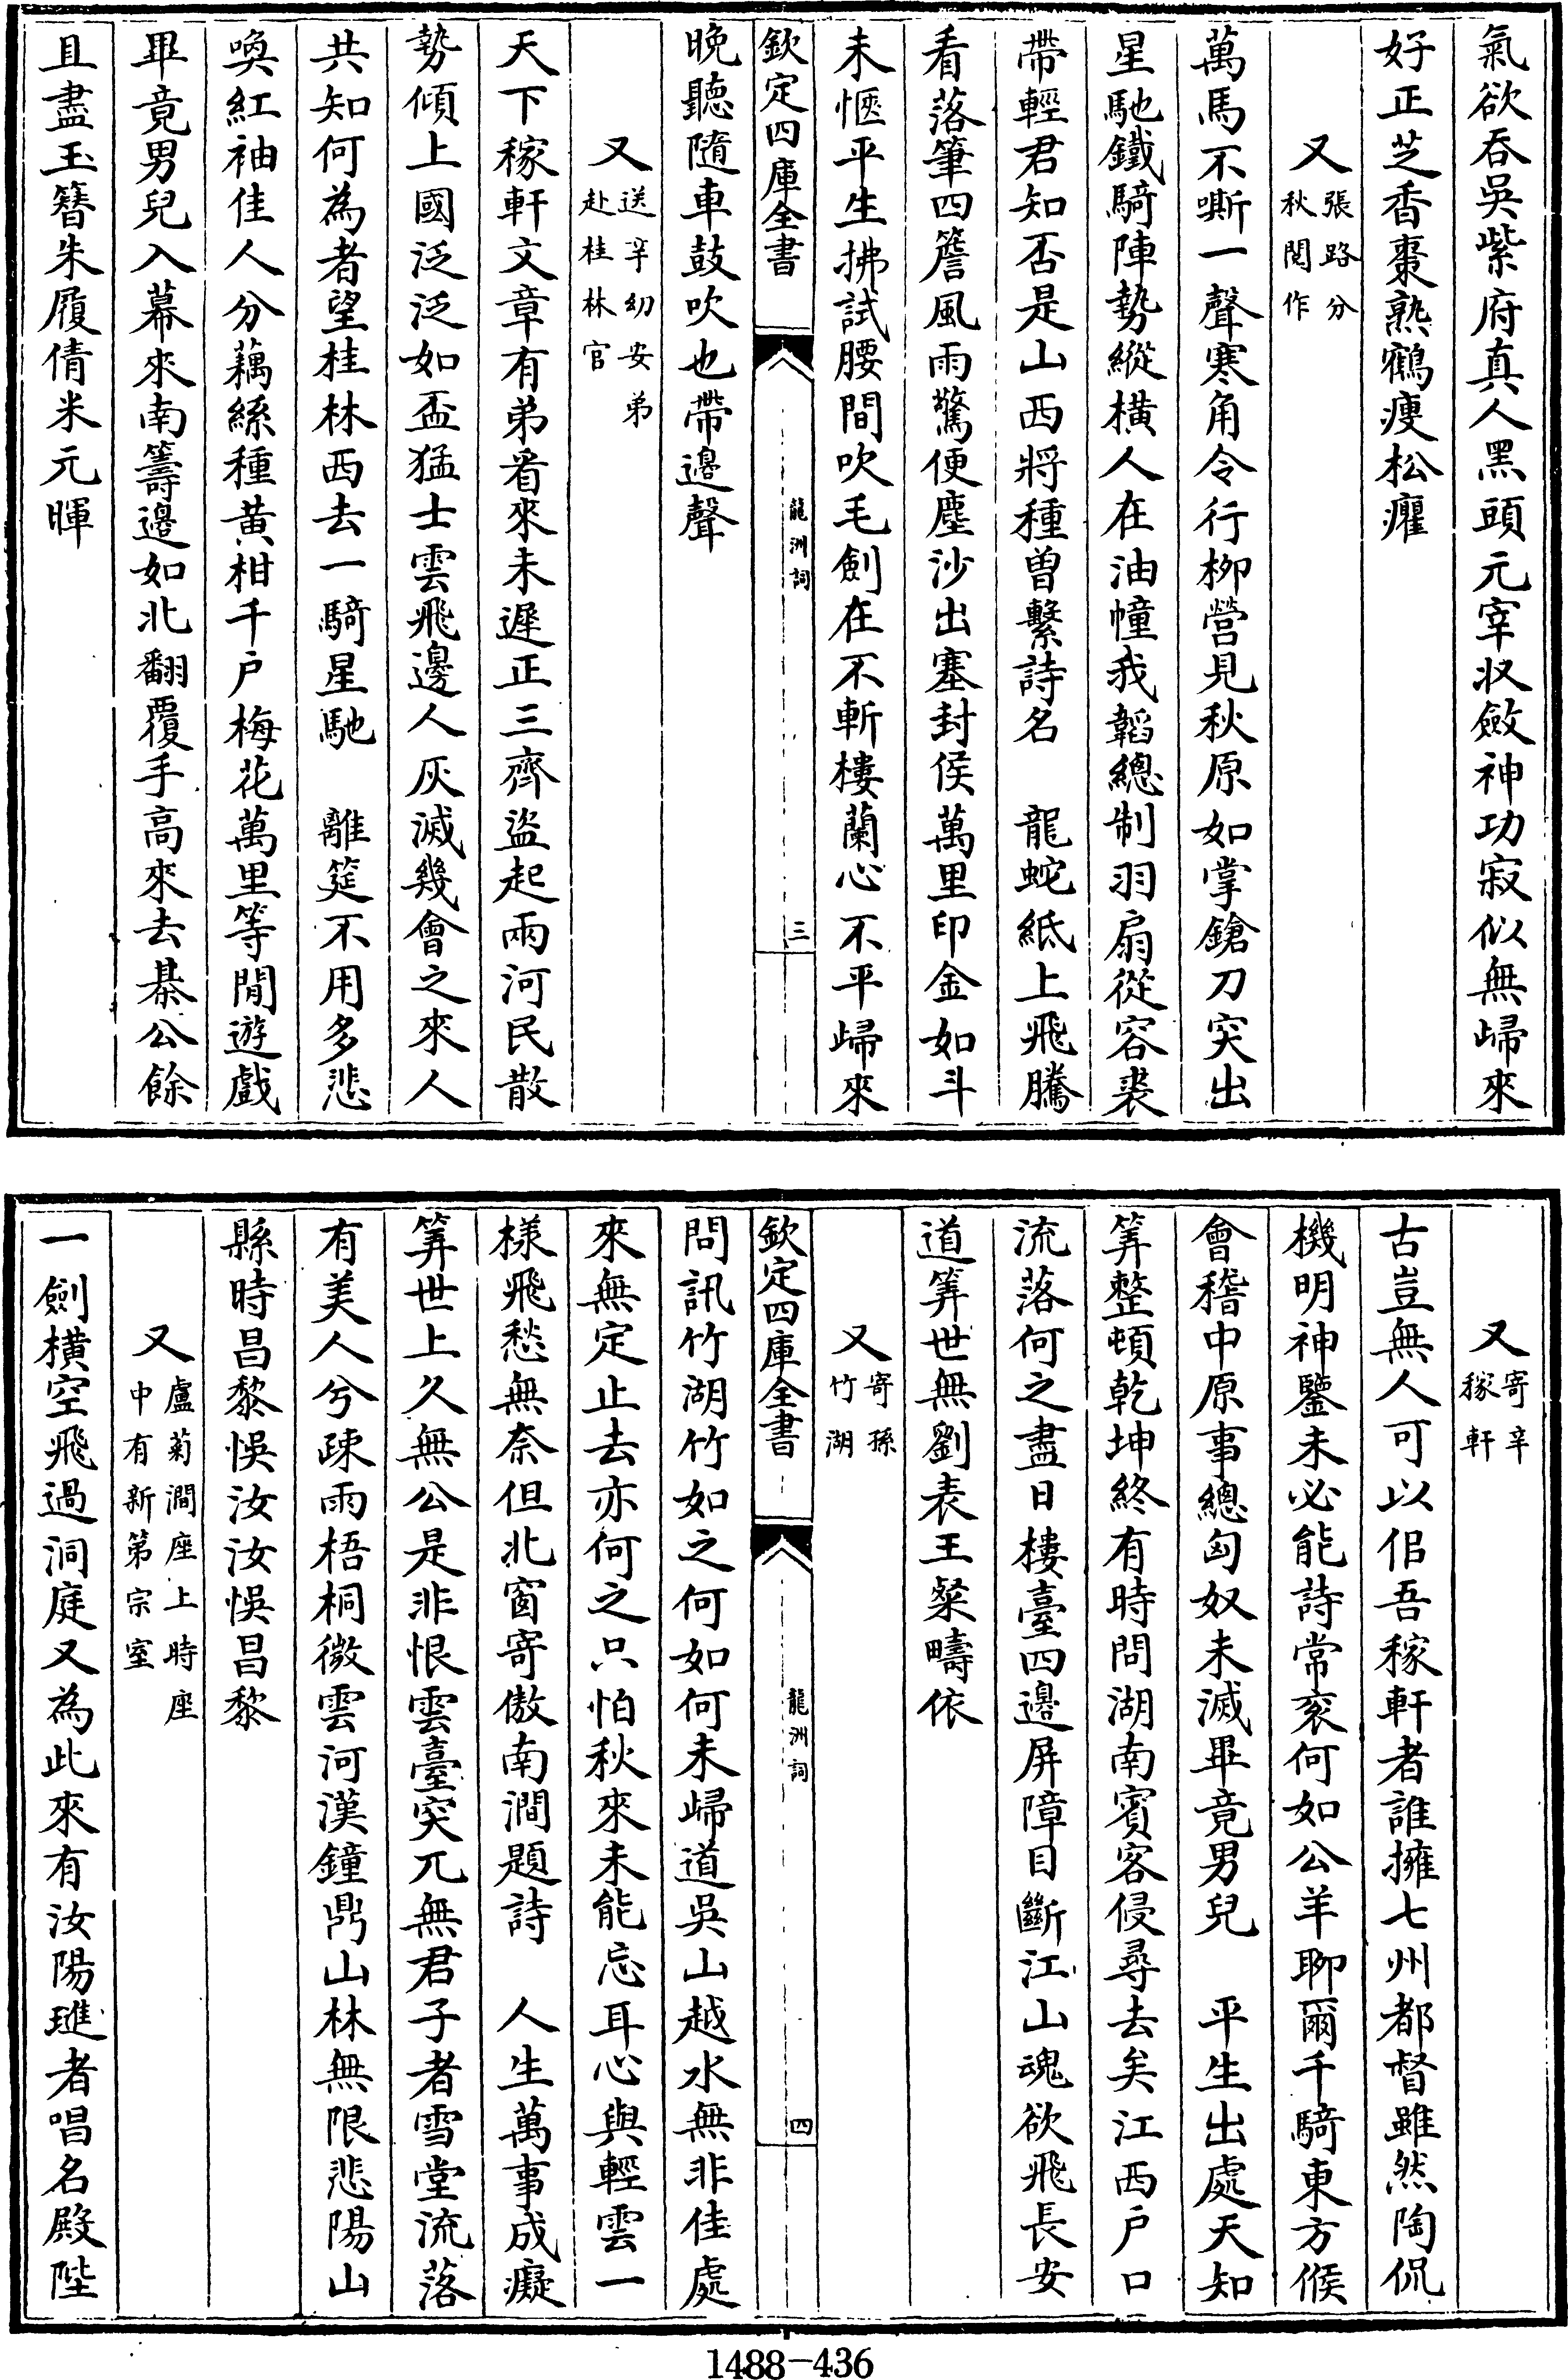 氣欲吞吳紫府真人黑頭元宰收斂神功寂似無歸來
好正芝香棗熟鶴瘦松癯
又張路分
秋閱作
萬馬不嘶一聲寒角令行柳營見秋原如掌鎗刀突出
星馳鐵騎陣勢縱橫人在油幢我韜總制羽扇從容裘
帶輕君知否是山西將種曾繫詩名 龍蛇紙上飛騰
看落筆四簷風雨驚便塵沙出塞封侯萬里印金如斗
未愜平生拂試腰間吹毛劍在不斬樓蘭心不平歸來
欽定四庫全書 龍洲詞 三
晚聽隨車鼓吹也帶邊聲
又送辛幼安弟
赴桂林官
天下稼軒文章有弟看來未遲正三齊盜起兩河民散
勢傾上國泛泛如盃猛士雲飛邊人灰滅幾會之來人
共知何為者望桂林西去一騎星馳 離筵不用多悲
喚紅袖佳人分藕絲種黃柑千户梅花萬里等閒遊戲
畢竟男兒入幕來南籌邊如北翻覆手高來去棊公餘
且盡玉簪朱履倩米元暉
又寄辛
稼軒
古豈無人可以佀吾稼軒者誰擁七州都督雖然陶侃
機明神鑒未必能詩常衮何如公羊聊爾千騎東方候
會稽中原事總匈奴未滅畢竟男兒 平生出處天知
筭整頓乾坤終有時問湖南賓客侵尋去矣江西户口
流落何之盡日樓臺四邊屏障目斷江山魂欲飛長安
道筭世無劉表王粲疇依
又寄孫
竹湖
欽定四庫全書 龍洲詞 四
問訊竹湖竹如之何如何未歸道吳山越水無非佳處
來無定止去亦何之只怕秋來未能忘耳心與輕雲一
樣飛愁無奈但北窗寄傲南澗題詩 人生萬事成癡
筭世上久無公是非恨雲臺突兀無君子者雪堂流落
有美人兮疎雨梧桐微雲河漢鐘鼎山林無限悲陽山
縣時昌黎悞汝汝悞昌黎
又盧菊澗座上時座
中有新第宗室
一劍橫空飛過洞庭又為此來有汝陽璡者唱名殿陛
1488-436